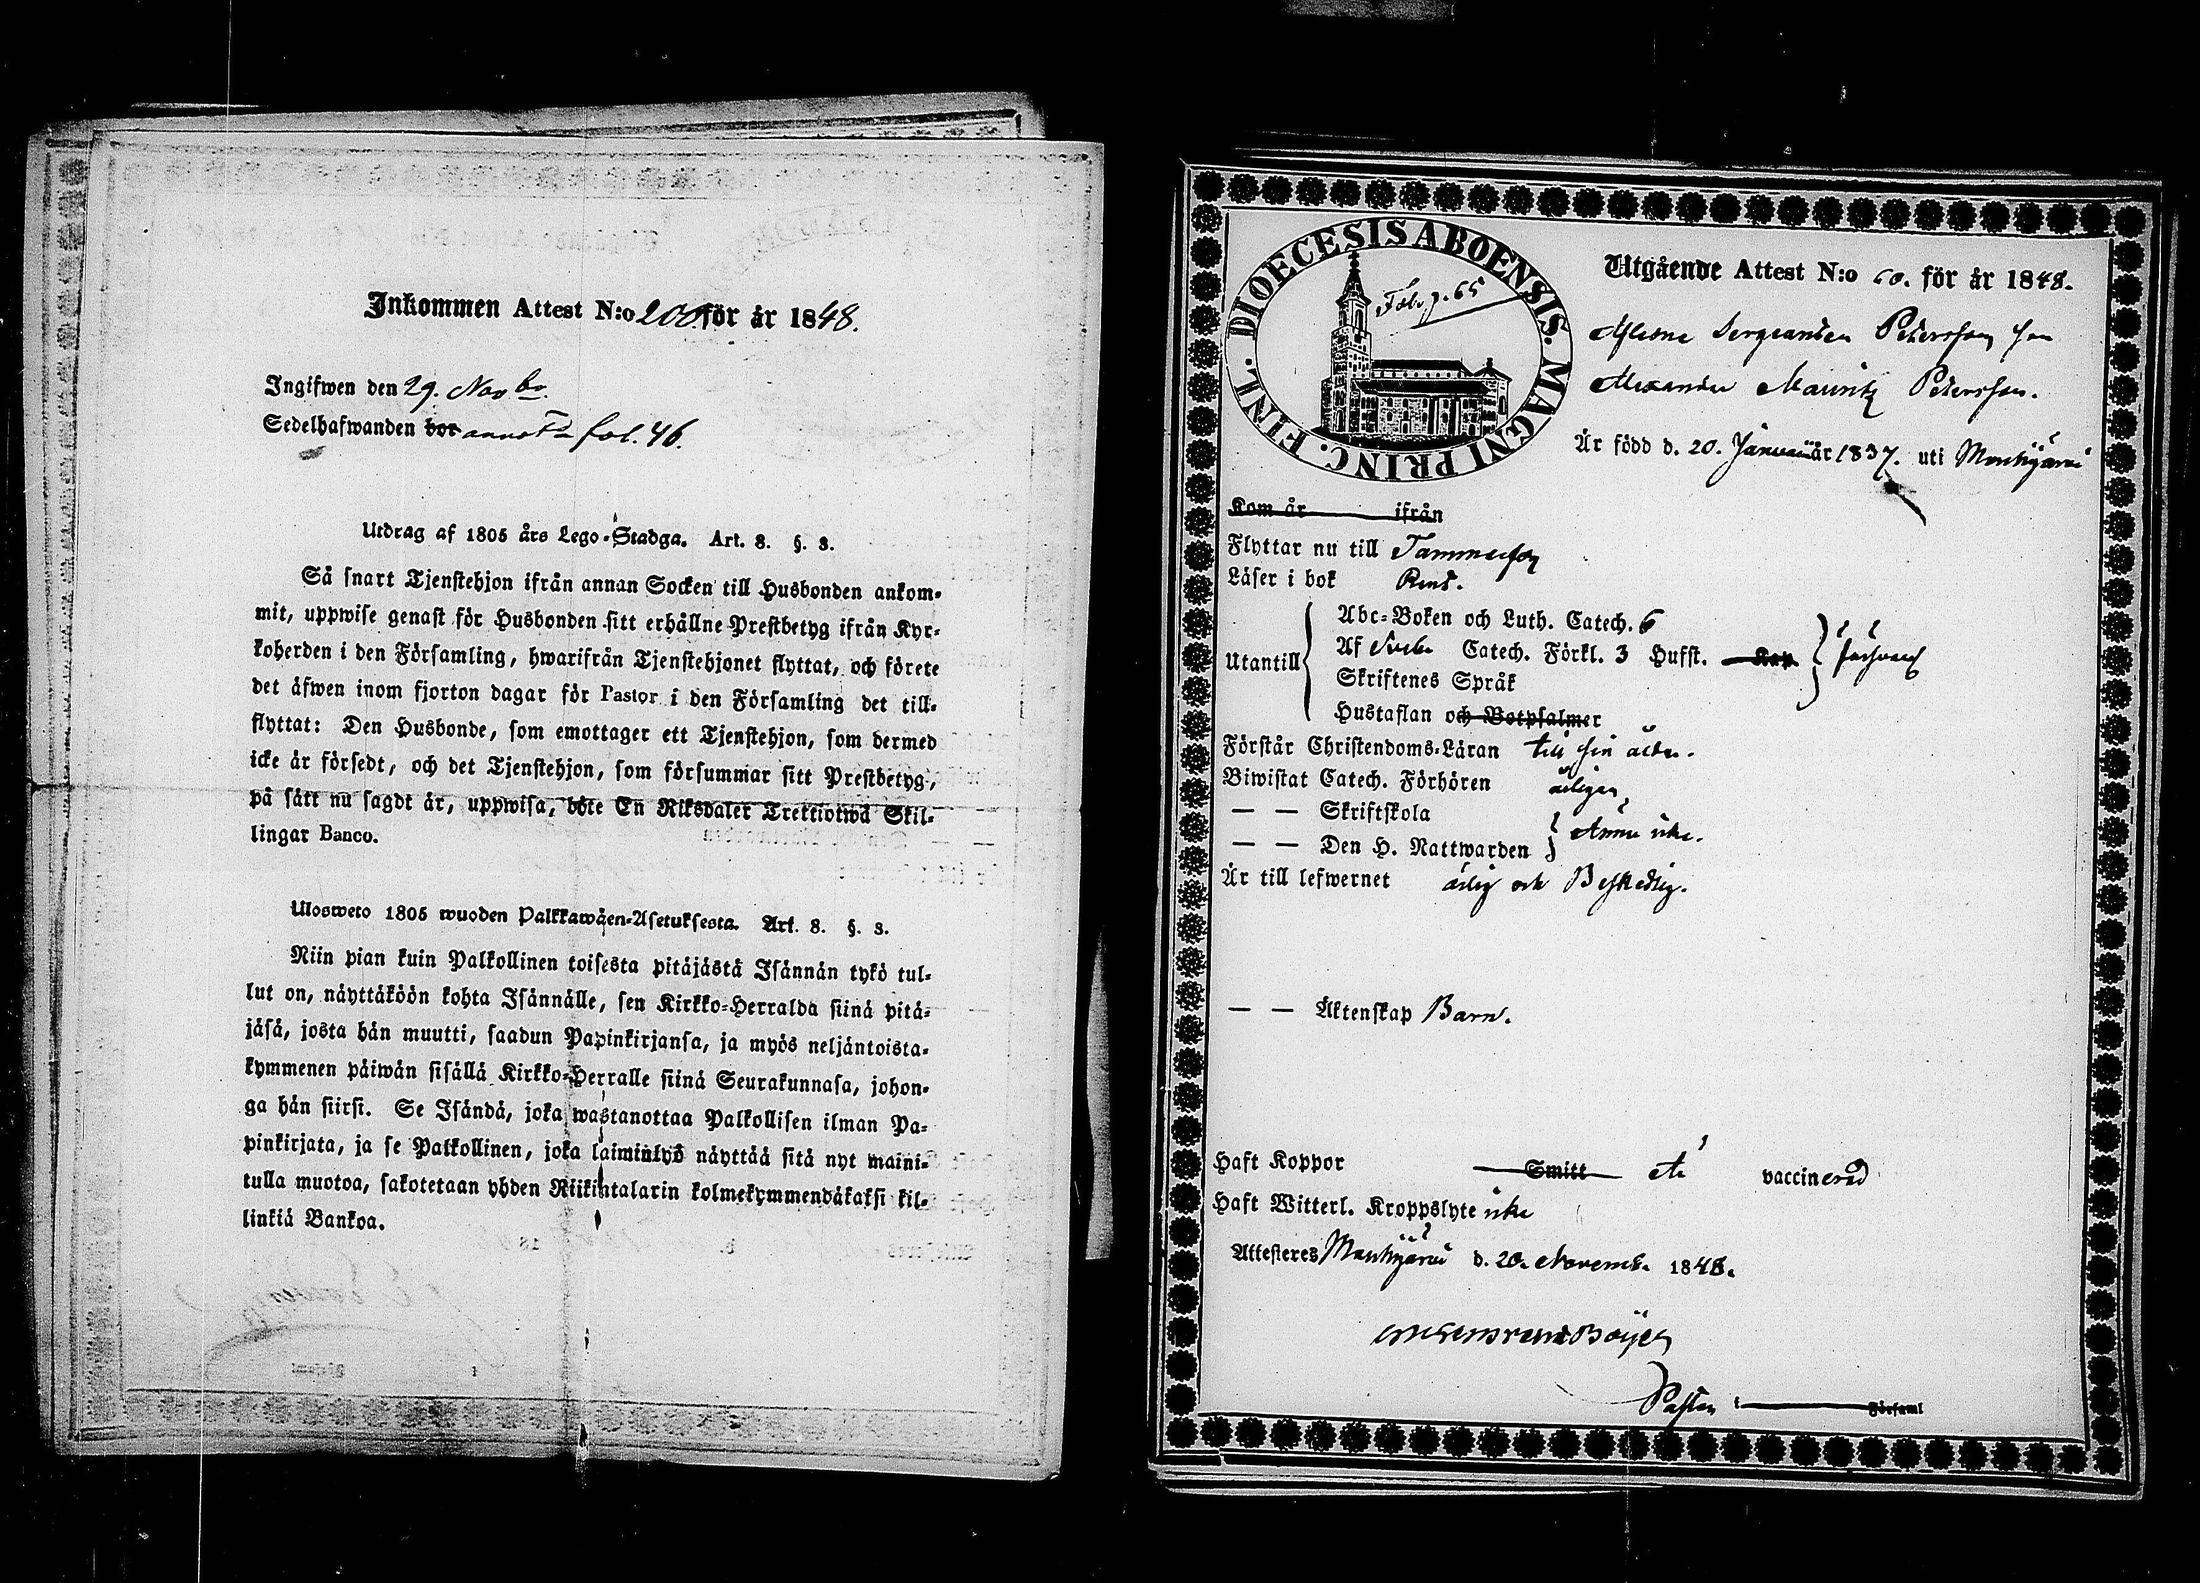 Inkommen Attest N:o 200 för år 1848.
Ingifwen den 29. Novbr.
Sedelhafwanden bor annot. fol. 46.
Utdrag af 1805 års Lego-Stadga. Art. 8. §. 3.
Så snart Tjenstehjon ifrån annan Socken till Husbonden ankom-
mit, uppwise genast för Husbonden sitt erhållne Prestbetyg ifrån Kyr-
koherden i den Församling, hwarifrån Tjenstehjonet flyttat, och förete
det äfwen inom fjorton dagar för Pastor i den Församling det till-
flyttat: Den Husbonde, som emottager ett Tjenstehjon, som dermed
icke är försedt, och det Tjenstehjon, som försummar sitt Prestbetyg,
på sätt nu sagdt är, uppwisa, böte En Riksdaler Trettiotwå Skil-
lingar Banco.
Ulosweto 1805 wuoden Palkkawäen-Asetuksesta. Art. 8. §. 3.
Niin pian kuin Palkollinen toisesta pitäjästä Isännän tykö tul-
lut on, näyttäköön kohta Isännälle, sen Kirkko-Herralda siinä pitä-
jäsä, josta hän muutti, saadun Papinkirjansa, ja myös neljäntoista-
kymmenen päiwän sisällä Kirkko-Herralle siinä Seurakunnasa, johon-
ga hän siirsi. Se Isändä, joka wastanottaa Palkollisen ilman Pa-
pinkirjata, ja se Palkollinen, joka laiminlyö näyttää sitä nyt maini-
tulla muotoa, sakotetaan yhden Riikintalarin kolmekymmendäkaksi kil-
linkiä Bankoa.
DIOECESIS ABOENSIS. MAGNI PRINC. FINL.
Fol. p. 65
Utgående Attest N:o 60. för år 1848.
Aflidne Sergeanten Petersson Son
Alexander Mauritz Petersson.
Är född d. 20. Januari år 1837. uti Mouhijärvi
Kom år ifrån
Flyttar nu till Tammerfors
Läser i bok Rent.
Utantill
Abc-Boken och Luth. Catech. 6
Af Sveb. Catech. Förkl. 3 Hufst. Kap.
Skriftenes Språk
Hustaflan och Botpsalmer
Försvarl.
Förstår Christendoms-Läran till sin ålder.
Biwistat Catech. Förhören årligen
— — Skriftskola
— — Den H. Nattwarden
Ännu icke.
Är till lefwernet ärlig och Beskedlig.
— — Äktenskap Barn.
Haft Koppor Smitt Är vaccinerad
Haft Witterl. Kroppslyte icke
Attesteres Mouhijärvi d. 20. Novemb. 1848.
Pastor i Församl